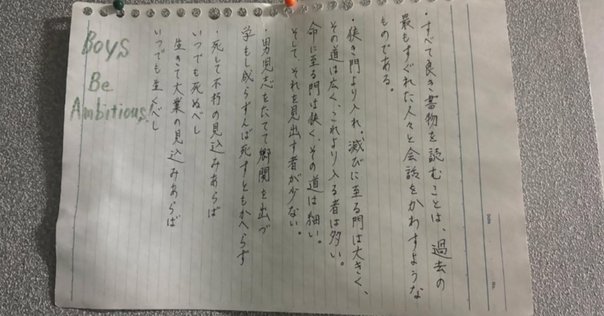 ・すべて良き書物を読むことは、過去の
最もすぐれた人々と会話をかわすような
ものである。
・狭き門より入れ、滅びに至る門は大きく、
その道は広く、これより入る者は多い。
命に至る門は狭く、その道は細い。
そして、それを見出す者が少ない。
男児志をたてて郷関を出づ
学もし成らずんば死すともかへらず
・死して不朽の見込みあらば
いつでも死ぬべし
生きて大業の見込みあらば
いつでも生くべし
Boys
Be
Ambitious.